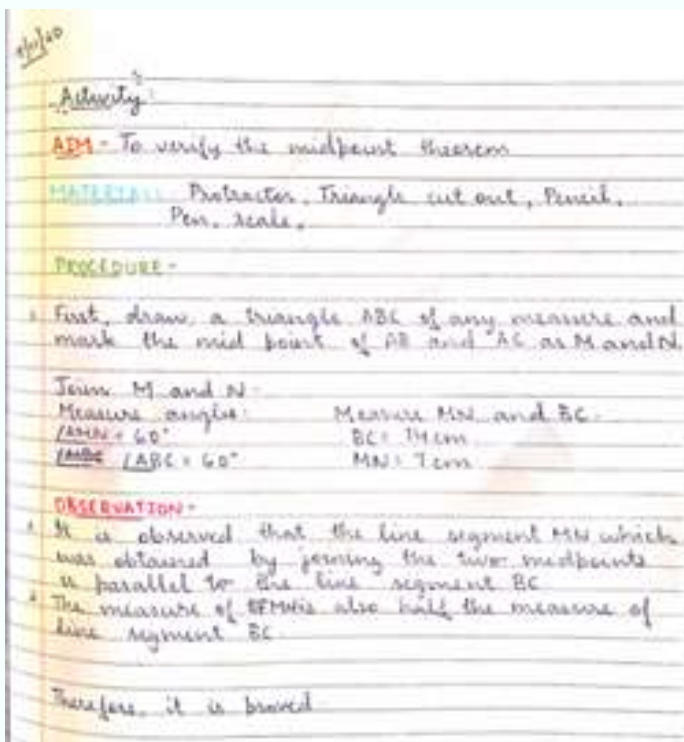 Activity:
AIM - To verify the midpoint theorem
MATERIAL: Protractor, Triangle cut out, Pencil,
Pen, scale.
PROCEDURE -
First, draw a triangle ABC of any measure and
mark the mid point of AB and AC as M and N.
Join M and N.
Measure angles: Measure MN and BC.
∠AMN = 60° BC = 14cm
∠ABC = 60° MN = 7cm
OBSERVATION -
It is observed that the line segment MN which
was obtained by joining the two midpoints
is parallel to the line segment BC
The measure of MN is also half the measure of
line segment BC.
Therefore, it is proved